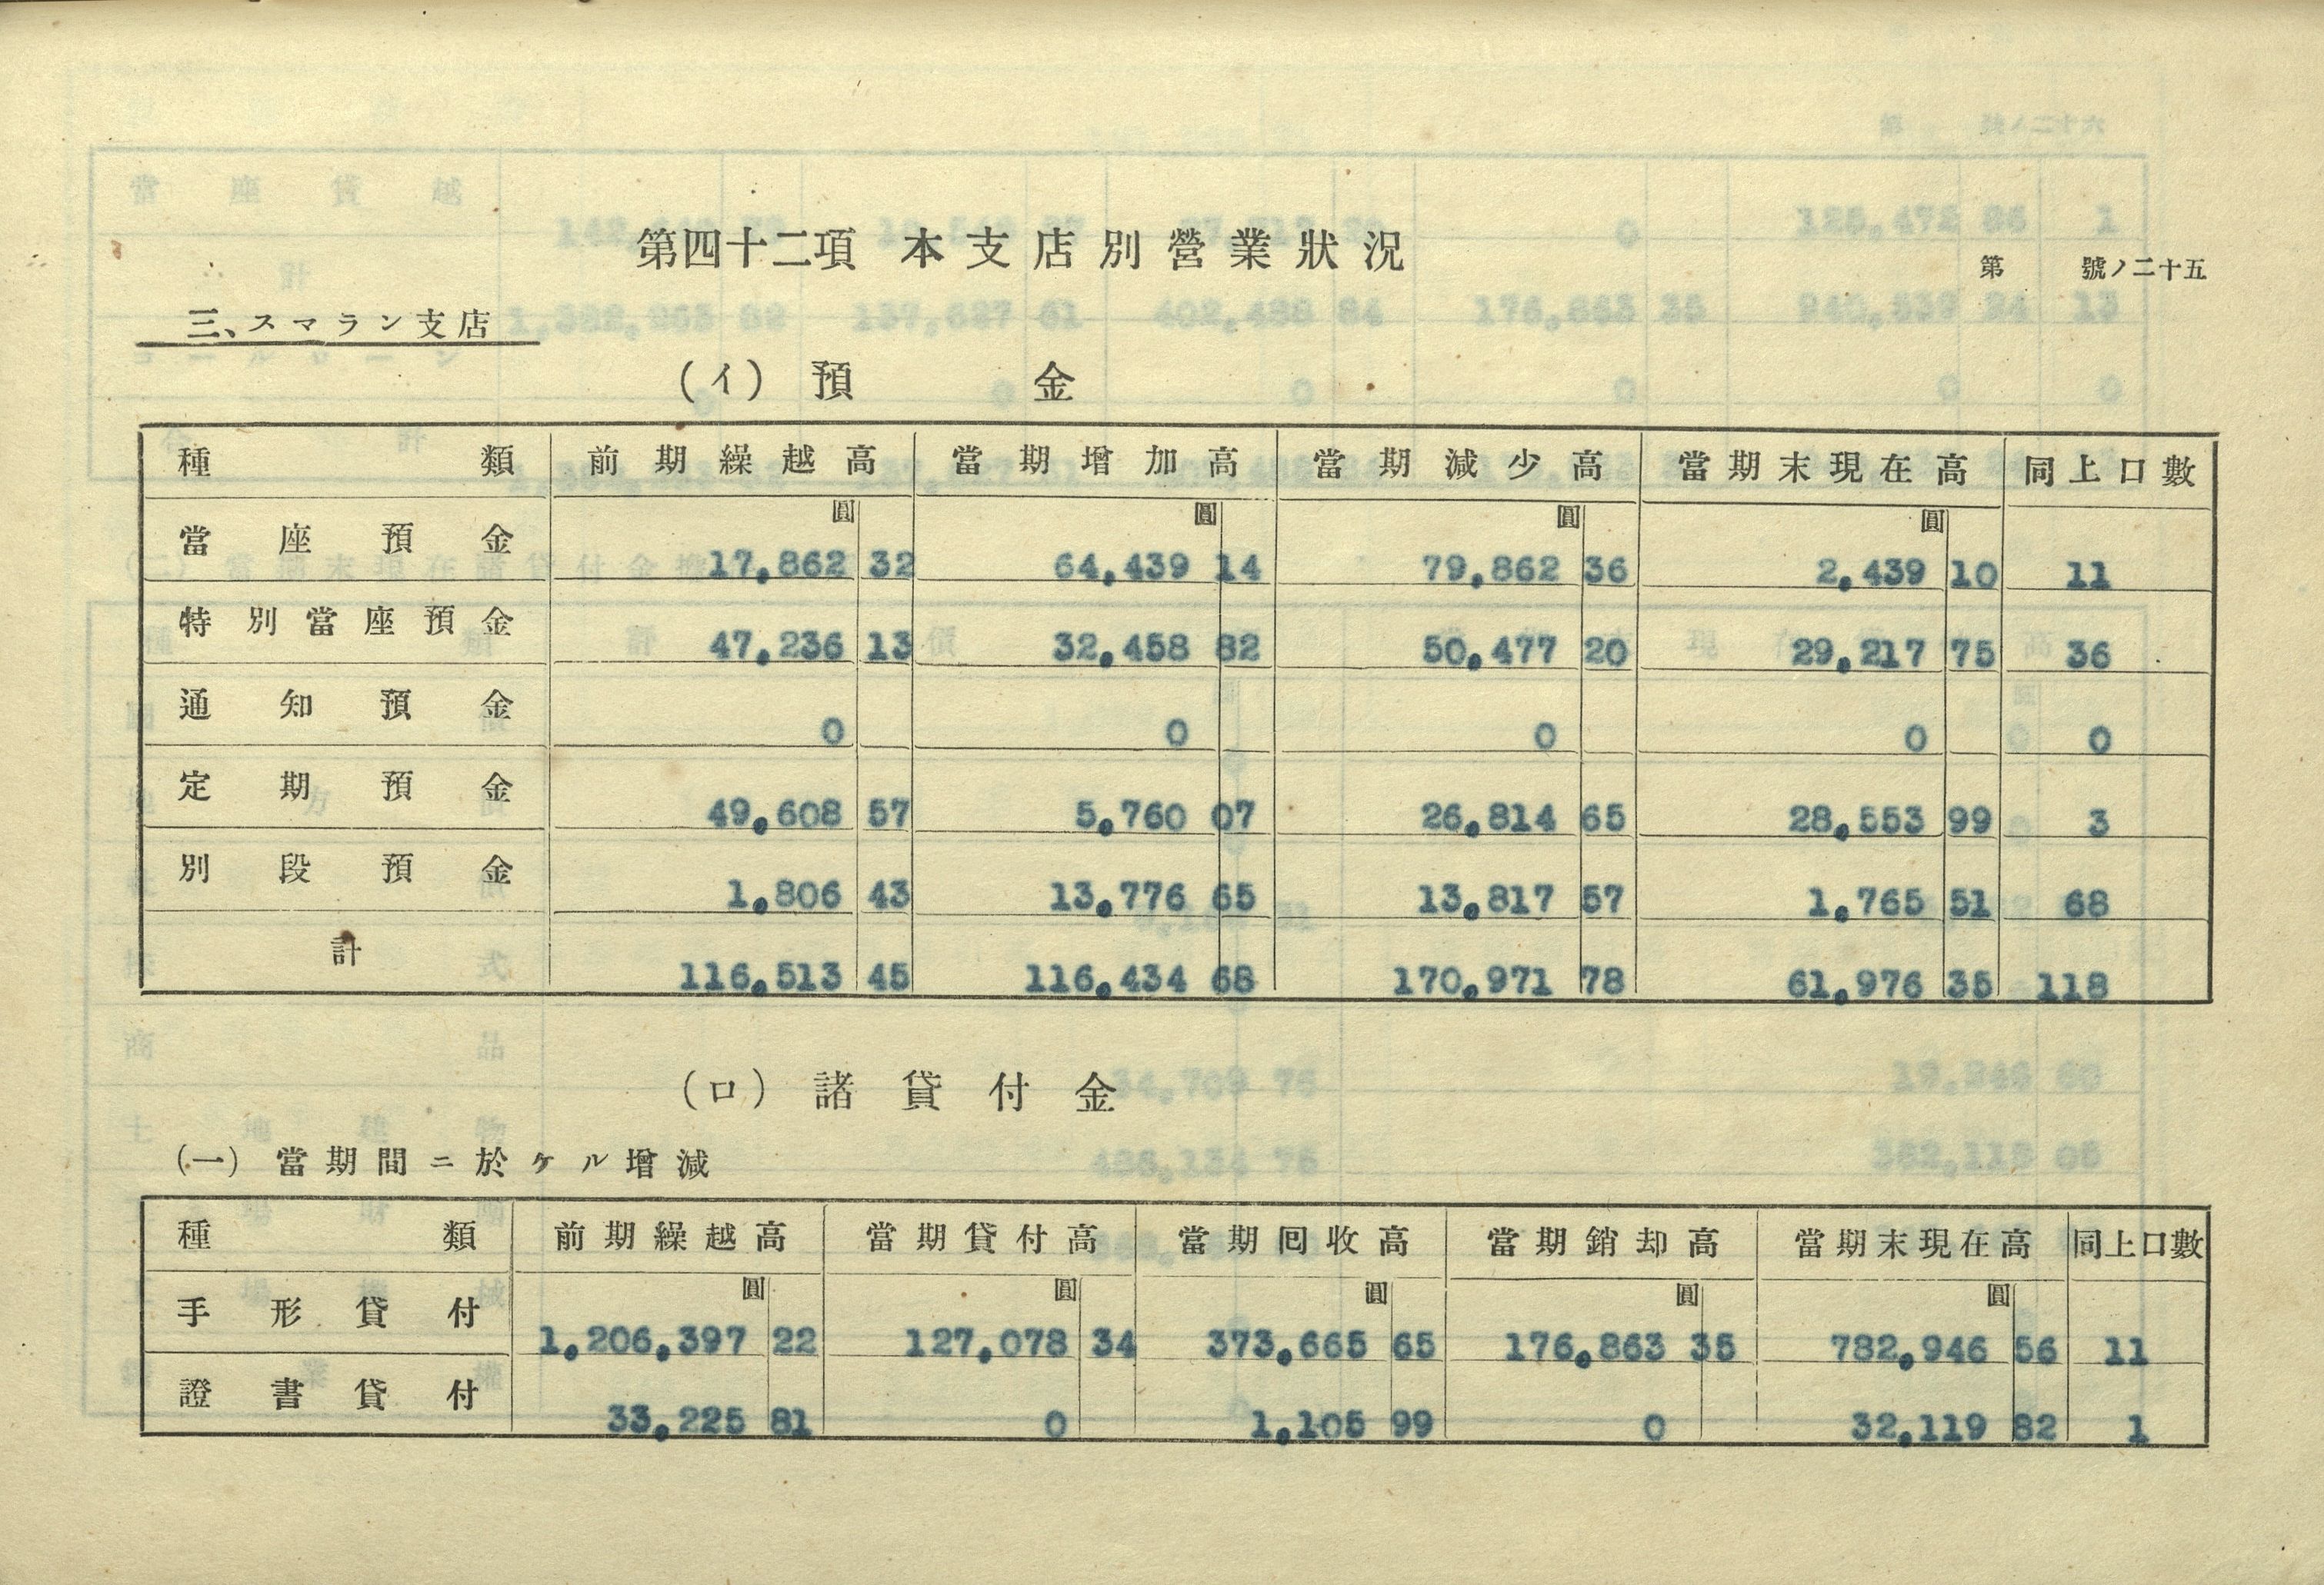 第四十二項 本支店別營業狀況
第 號ノ二十五
三、スマラン支店
(イ) 預金
種類 前期繰越高 當期增加高 當期減少高 當期末現在高 同上口數
圓 圓 圓 圓
當座預金 17,862 32 64,439 14 79,862 36 2,439 10 11
特別當座預金 47,236 13 32,458 82 50,477 20 29,217 75 36
通知預金 0 0 0 0 0
定期預金 49,608 57 5,760 07 26,814 65 28,553 99 3
別段預金 1,806 43 13,776 65 13,817 57 1,765 51 68
計 116,513 45 116,434 68 170,971 78 61,976 35 118
(ロ) 諸貸付金
(一) 當期間ニ於ケル增減
種類 前期繰越高 當期貸付高 當期囘收高 當期銷却高 當期末現在高 同上口數
圓 圓 圓 圓 圓
手形貸付 1,206,397 22 127,078 34 373,665 65 176,863 35 782,946 56 11
證書貸付 33,225 81 0 1,105 99 0 32,119 82 1